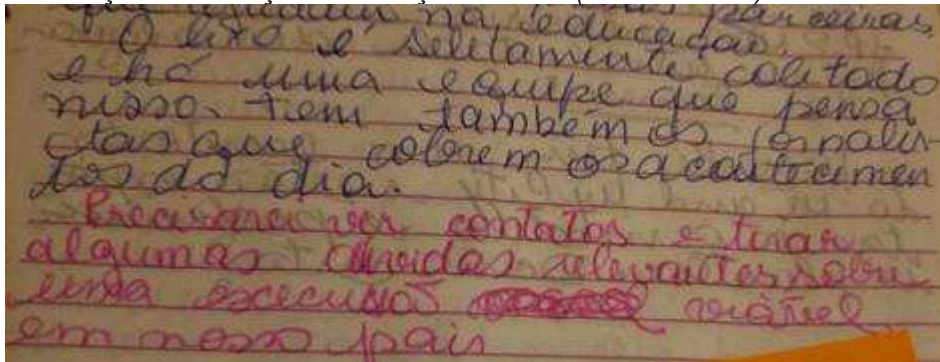 na educação. parceiras,
O lixo é seletamente coletado
e há uma equipe que pensa
nisso. Tem também os jornalis
tas que cobrem os acontecimen
tos do dia.
ver contatos e tirar
algumas duvidas relevantes sobre
uma viável
em nosso país